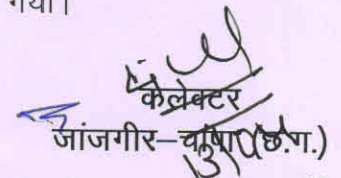 गया।
कलेक्टर
जांजगीर–चांपा (छ.ग.)